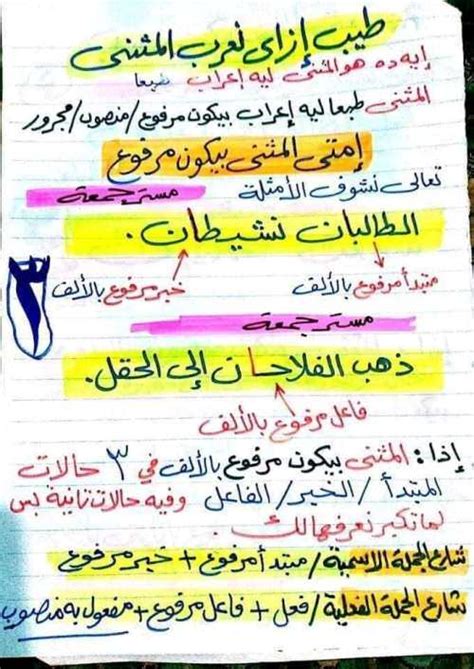 طيب إزاي نعرب المثنى
إيه ده هو المثنى ليه إعراب طبعا
المثنى طبعا ليه إعراب بيكون مرفوع/منصوب/مجرور
إمتى المثنى بيكون مرفوع
تعالى نشوف الأمثلة
مستر جمعة
الطالبان نشيطان.
مبتدأ مرفوع بالألف
خبر مرفوع بالألف
٢
مستر جمعة
ذهب الفلاحان إلى الحقل.
فاعل مرفوع بالألف
إذا: المثنى بيكون مرفوع بالألف في ٣ حالات
المبتدأ / الخبر / الفاعل وفيه حالات تانية بس
لما تكبر نعرفهالك.
شارع الجملة الاسمية / مبتدأ مرفوع + خبر مرفوع
شارع الجملة الفعلية / فعل + فاعل مرفوع + مفعول به منصوب